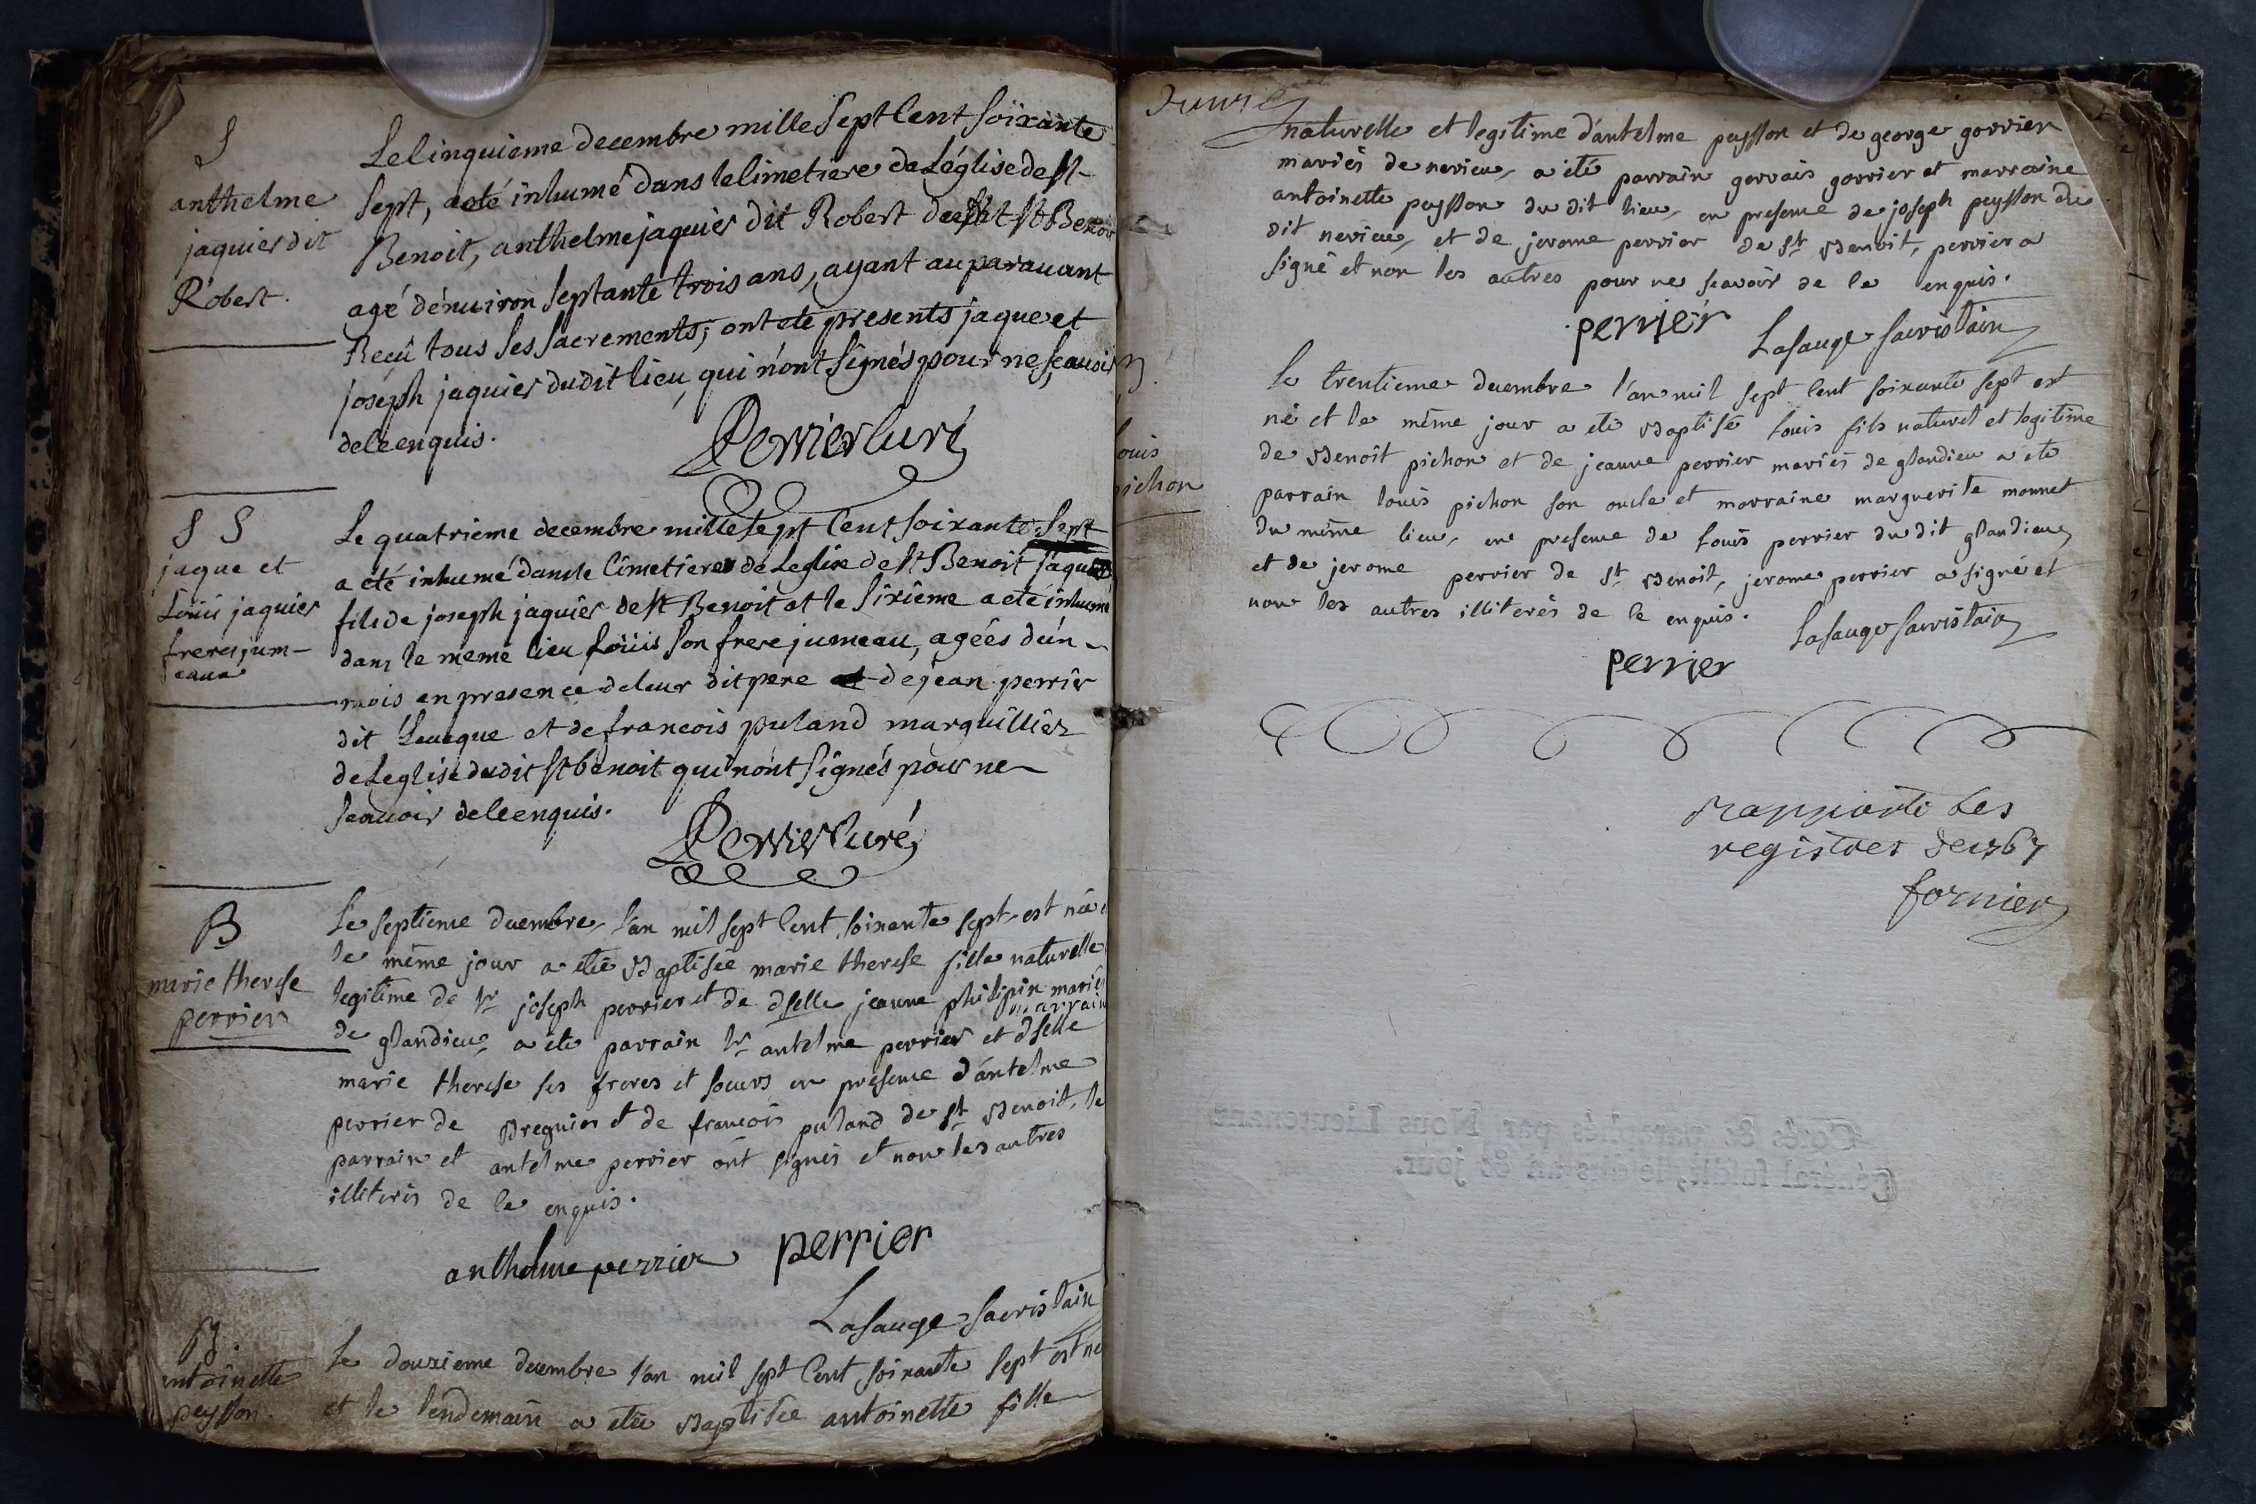 S
anthelme
jaquier dit
Robert.
Le Cinquieme decembre mille Sept Cent Soixante
Sept, a eté inhumé dans le Cimetiere de L'église de St
Benoit, anthelme jaquier dit Robert dudit St Benoit
agé d'énuiron septante trois ans, ayant auparauant
Reçû tous ses Sacrements, ont eté presents jaque et
joseph jaquier dudit lieu, qui n'ont Signés pour ne Scauoir
de ce enquis.
Perrier Curé
S S
jaque et
Loüis jaquier
freres jum-
eaux
Le quatrieme decembre mille Sept Cent Soixante Sept
a eté inhumé dans le Cimetiere de L'eglise de St Benoit jaque
fils de joseph jaquier de St Benoit et le Sixième a eté inhumé
dans le meme lieu Loüis Son frere jumeau, agées d'un
mois en presence de leur dit pere et de jean perrier
dit Leveque et de francois puland marguillier
de L'eglise dudit St benoit qui n'ont Signés pour ne
Scauoir de ce enquis.
Perrier Curé
B
marie therese
perrier
Le septieme decembre l'an mil sept Cent soixante sept est née et
le même jour a été Baptisée marie therese fille naturelle
legitime de Sr joseph perrier et de dselle jeanne philipin mariés
de glandieu a été parrain Sr antelme perrier et marraine dselle
marie therese ses freres et soeurs en presence d'antelme
perrier de Breguier et de francois puland de St Benoit, le
parrain et antelme perrier ont signés et non les autres
illiterés de ce enquis.
anthelme perrier perrier
Lasauge Sacristain
B.
antoinette
peysson.
Le douzieme decembre l'an mil sept Cent soixante sept est née
et le lendemain a été Baptisée antoinette fille
naturelle et legitime d'antelme peysson et de george gorrier
mariés de nerieu, a été parrain gervais gorrier et marraine
antoinette peysson du dit lieu, en presence de joseph peysson du
dit nerieu, et de jerome perrier de St Benoit, perrier a
signé et non les autres pour ne scavoir de ce enquis.
perrier Lasauge Sacristain
Louis
pichon
Le trentieme decembre l'an mil sept Cent soixante sept est
né et le même jour a été Baptisé Louis fils naturel et legitime
de Benoît pichon et de jeanne perrier mariés de glandieu a été
parrain Louis pichon son oncle et marraine marguerite monnet
du même lieu, en presence de Louis perrier du dit glandieu
et de jerome perrier de St Benoit, jerome perrier a signé et
non les autres illiterés de ce enquis.
Lasauge Sacristain
perrier
rapporté les
registres de 1767
fornier
Cotés & paraphés par Nous Lieutenant
Général susdit, lesdits an & jour.